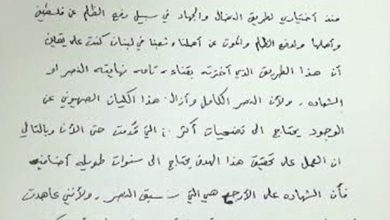 منذ اختياري لطريق النضال والجهاد في سبيل رفع الظلم عن فلسطين
وأهلها ولدفع الظلم والموت عن أهلنا وشعبنا في لبنان كنت على يقين
أن هذا الطريق الذي اخترته بقناعه تامه نهايته النصر أو
الشهاده . ولأن النصر الكامل وأزاله هذا الكيان الصهيوني عن
الوجود يحتاج الى تضحيات أكثر التي قدمت حتى الأن وبالتالي
ان العمل على تحقيق هذا الهدف يحتاج الى سنوات طويله أضافيه
فأن الشهاده على الأرجح هي التي ستسبق النصر . ولأنني عاهدت